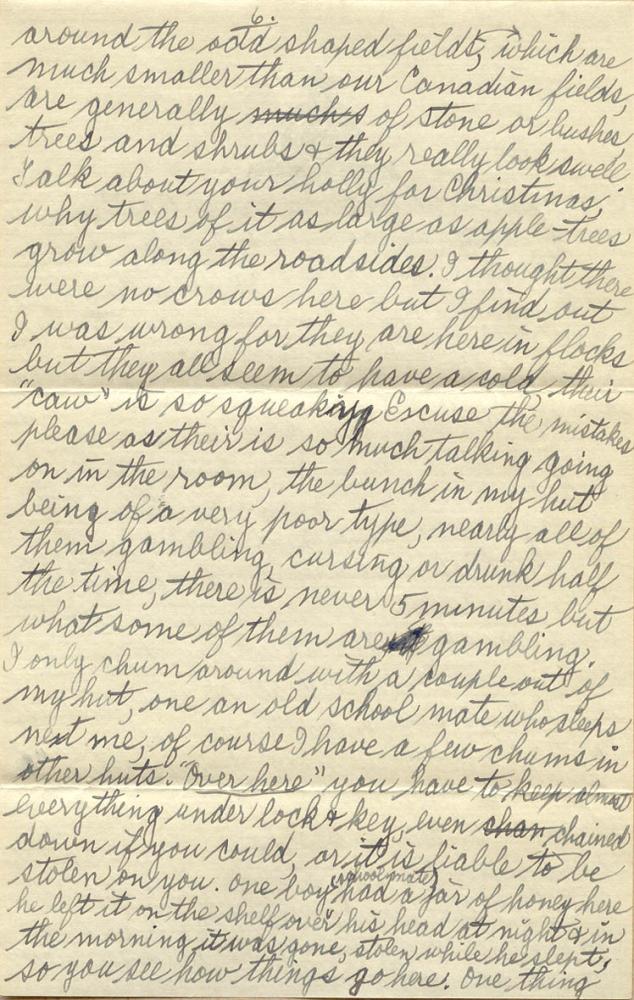 6.
around the odd shaped fields, which are
much smaller than our Canadian fields,
are generally much s of stone or bushes,
trees and shrubs & they really look swell
Talk about your holly for Christmas,
why trees of it as large as apple-trees
grow along the roadsides. I thought there
were no crows here but I find out
I was wrong for they are here in flocks
but they all seem to have a cold, their
"caw" is so squeaking Excuse the mistakes
please as their is so much talking going
on in the room, the bunch in my hut
being of a very poor type, nearly all of
them gambling, cursing or drunk half
the time, there is never 5 minutes but
what some of them are gambling.
I only chum around with a couple out of
my hut, one an old school mate who sleeps
next me, of course I have a few chums in
other huts. "Over here" you have to keep almost
everything under lock & key, even chan chained
down if you could, or it is liable to be
stolen on you. One boy (school mate) had a jar of honey here
he left it on the shelf over his head at night & in
the morning it was gone, stolen while he slept,
so you see how things go here. One thing